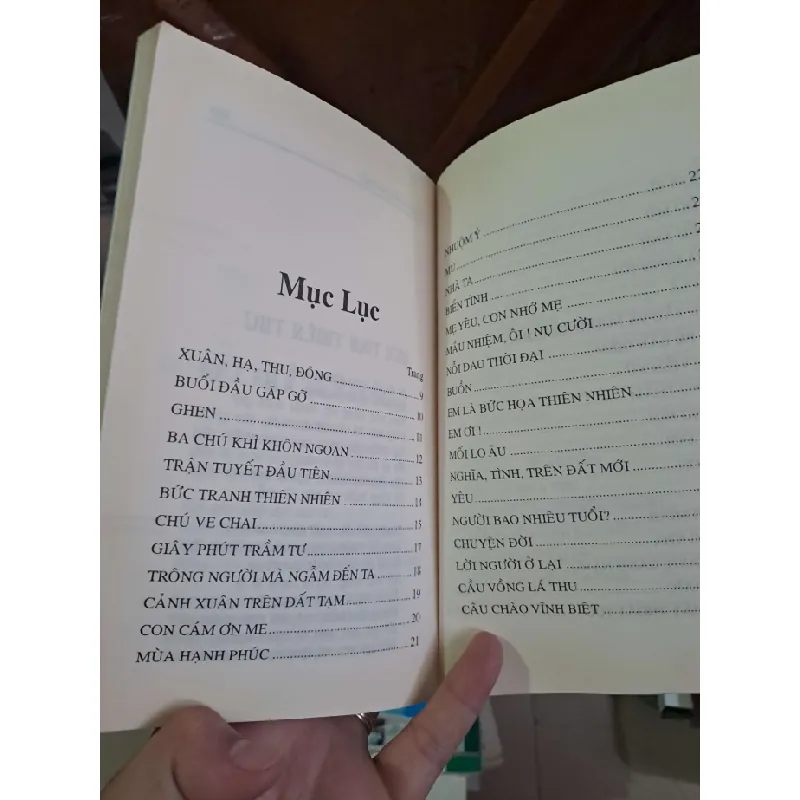 Mục Lục
Trang
XUÂN, HẠ, THU, ĐÔNG 9
BUỔI ĐẦU GẶP GỠ 10
GHEN 11
BA CHÚ KHỈ KHÔN NGOAN 12
TRẬN TUYẾT ĐẦU TIÊN 13
BỨC TRANH THIÊN NHIÊN 14
CHÚ VE CHAI 15
GIÂY PHÚT TRẦM TƯ 17
TRÔNG NGƯỜI MÀ NGẪM ĐẾN TA 18
CẢNH XUÂN TRÊN ĐẤT TẠM 19
CON CÁM ƠN MẸ 20
MÙA HẠNH PHÚC 21
NHUỘM Ý
MƯ
NHÀ TA
BIỂN TÌNH
MẸ YÊU, CON NHỚ MẸ
MẦU NHIỆM, ÔI ! NỤ CƯỜI
NỖI ĐAU THỜI ĐẠI
BUỒN
EM LÀ BỨC HỌA THIÊN NHIÊN
EM ƠI !
MỐI LO ÂU
NGHĨA, TÌNH, TRÊN ĐẤT MỚI
YÊU
NGƯỜI BAO NHIÊU TUỔI?
CHUYỆN ĐỜI
LỜI NGƯỜI Ở LẠI
CẦU VỒNG LÁ THU
CÂU CHÀO VĨNH BIỆT